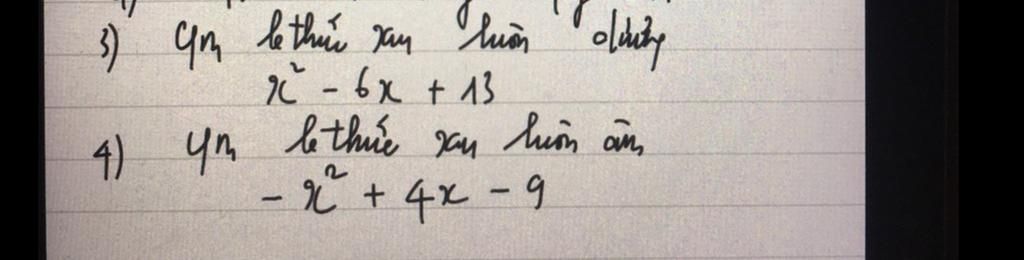 3) CM bthức sau luôn dương
x² - 6x + 13
4) CM bthức sau luôn âm
- x² + 4x - 9